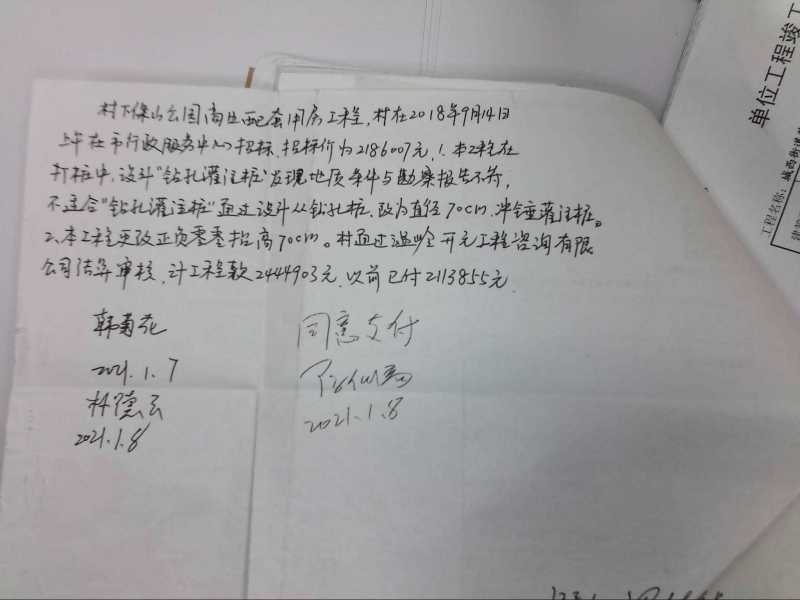 村下保山公园商业配套用房工程,村在2018年9月14日
上午在市行政服务中心招标,招标价为2186007元,1.本工程在
打桩中,设计"钻孔灌注桩"发现地质条件与勘察报告不符,
不适合"钻孔灌注桩"通过设计从钻孔桩,改为直径70cm.冲锤灌注桩。
2、本工程更改正负零零抬高70cm。村通过 开元工程咨询有限
公司结算审核,计工程款2444903元,以前已付2113855元
韩菊花
同意支付
2021.1.7
林德云
2021.1.8
2021.1.8
单位工程竣工
工程名称:城西街道